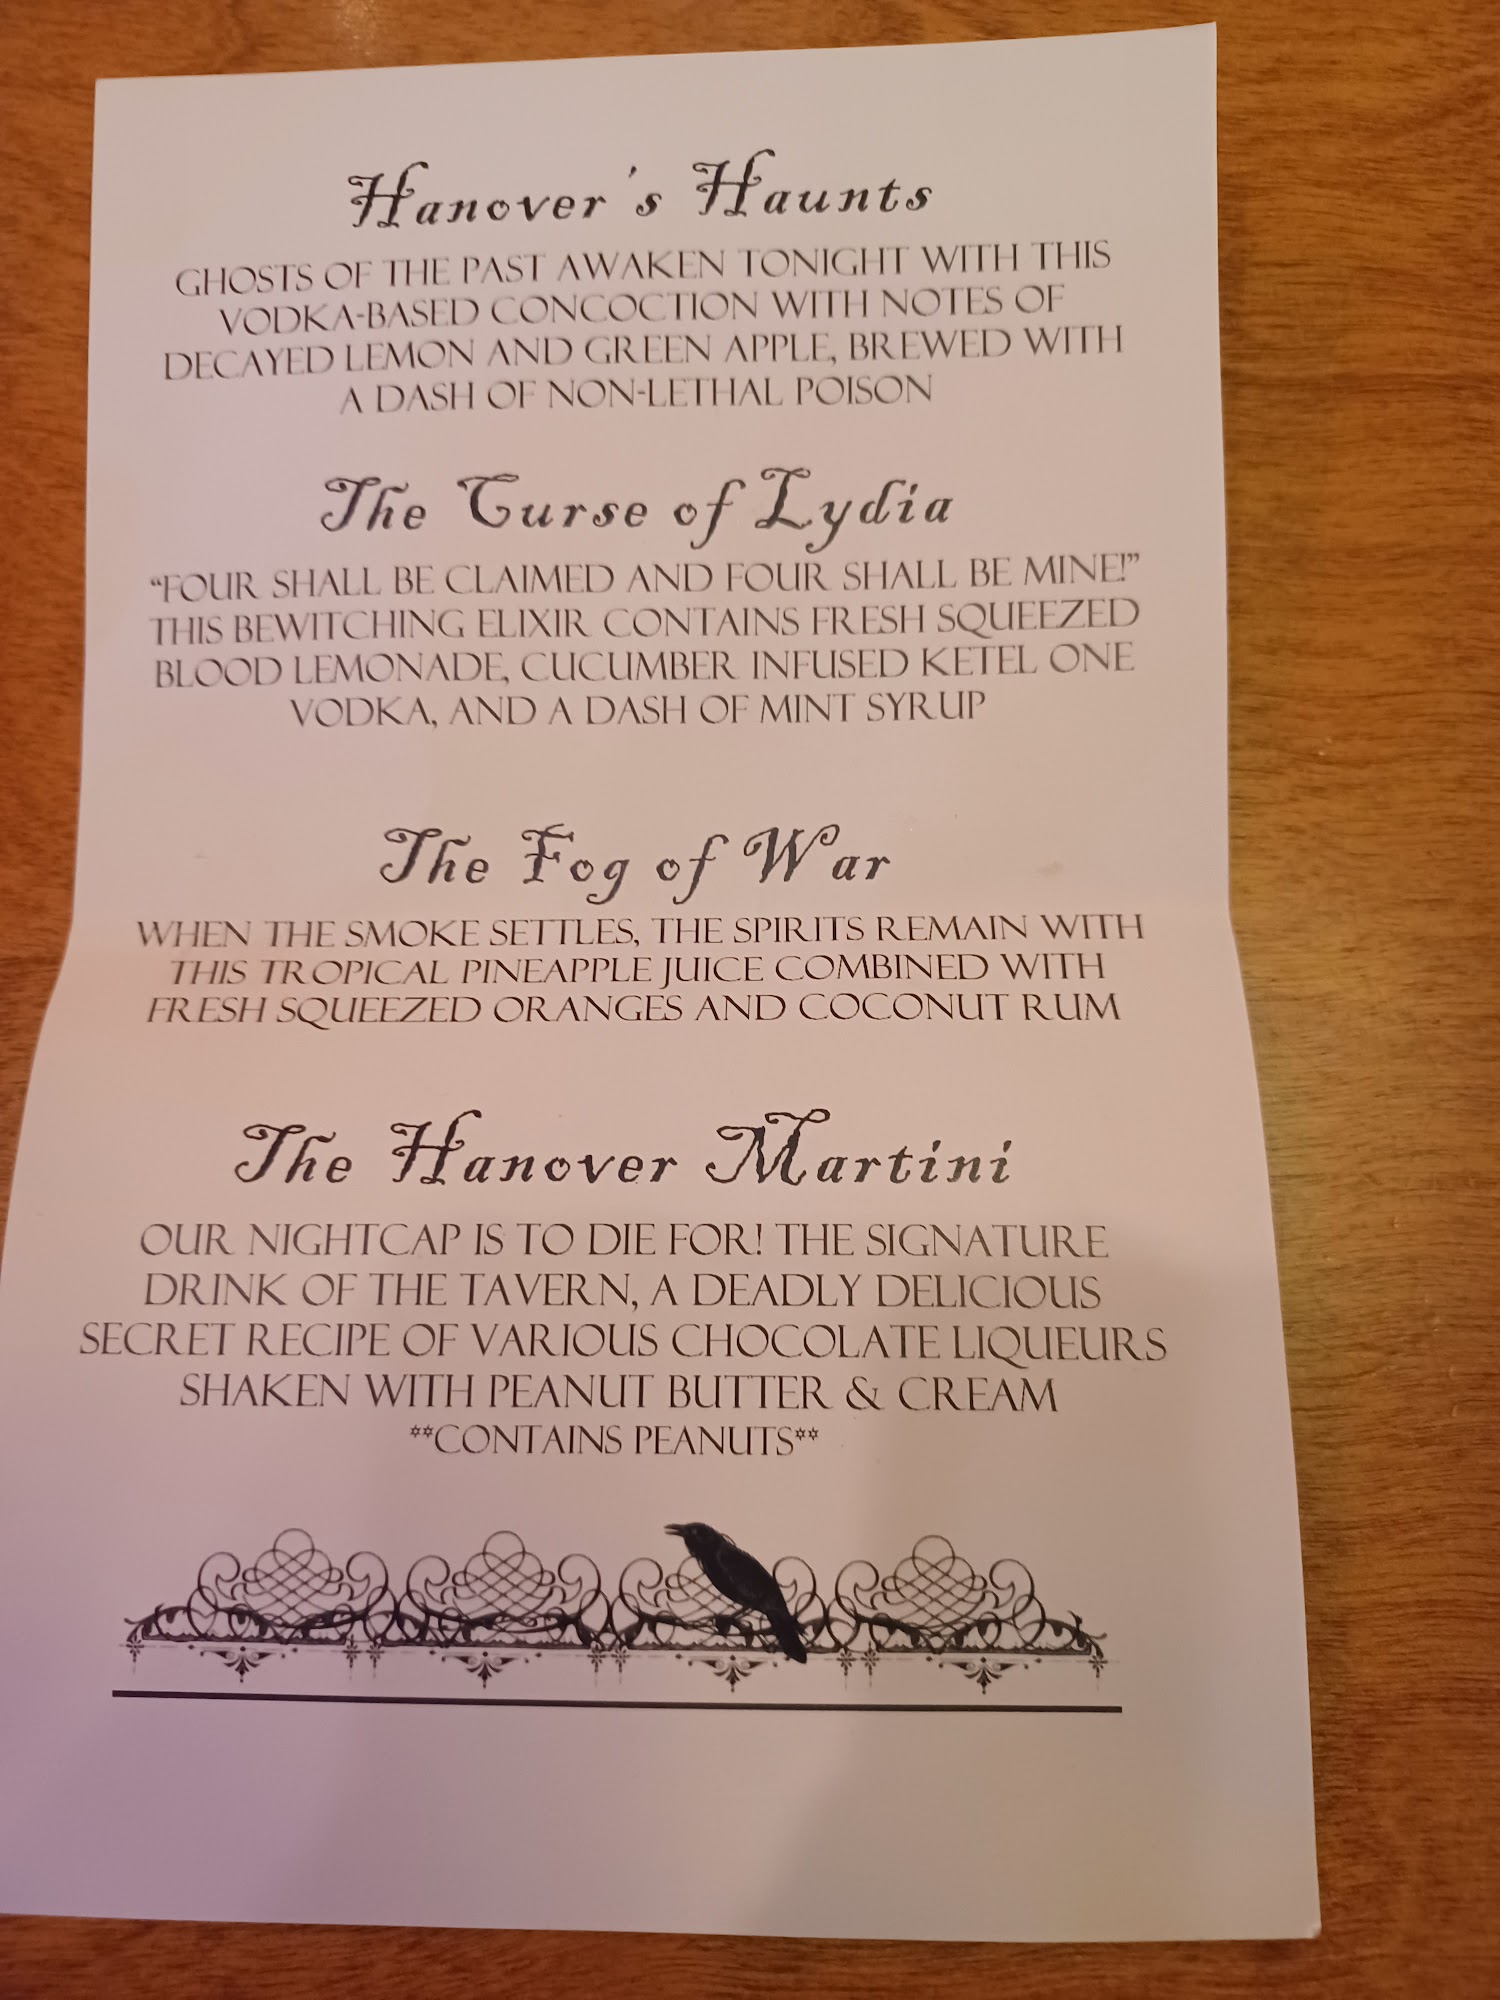 Hanover's Haunts
GHOSTS OF THE PAST AWAKEN TONIGHT WITH THIS
VODKA-BASED CONCOCTION WITH NOTES OF
DECAYED LEMON AND GREEN APPLE, BREWED WITH
A DASH OF NON-LETHAL POISON
The Curse of Lydia
“FOUR SHALL BE CLAIMED AND FOUR SHALL BE MINE!”
THIS BEWITCHING ELIXIR CONTAINS FRESH SQUEEZED
BLOOD LEMONADE, CUCUMBER INFUSED KETEL ONE
VODKA, AND A DASH OF MINT SYRUP
The Fog of War
WHEN THE SMOKE SETTLES, THE SPIRITS REMAIN WITH
THIS TROPICAL PINEAPPLE JUICE COMBINED WITH
FRESH SQUEEZED ORANGES AND COCONUT RUM
The Hanover Martini
OUR NIGHTCAP IS TO DIE FOR! THE SIGNATURE
DRINK OF THE TAVERN, A DEADLY DELICIOUS
SECRET RECIPE OF VARIOUS CHOCOLATE LIQUEURS
SHAKEN WITH PEANUT BUTTER & CREAM
**CONTAINS PEANUTS**